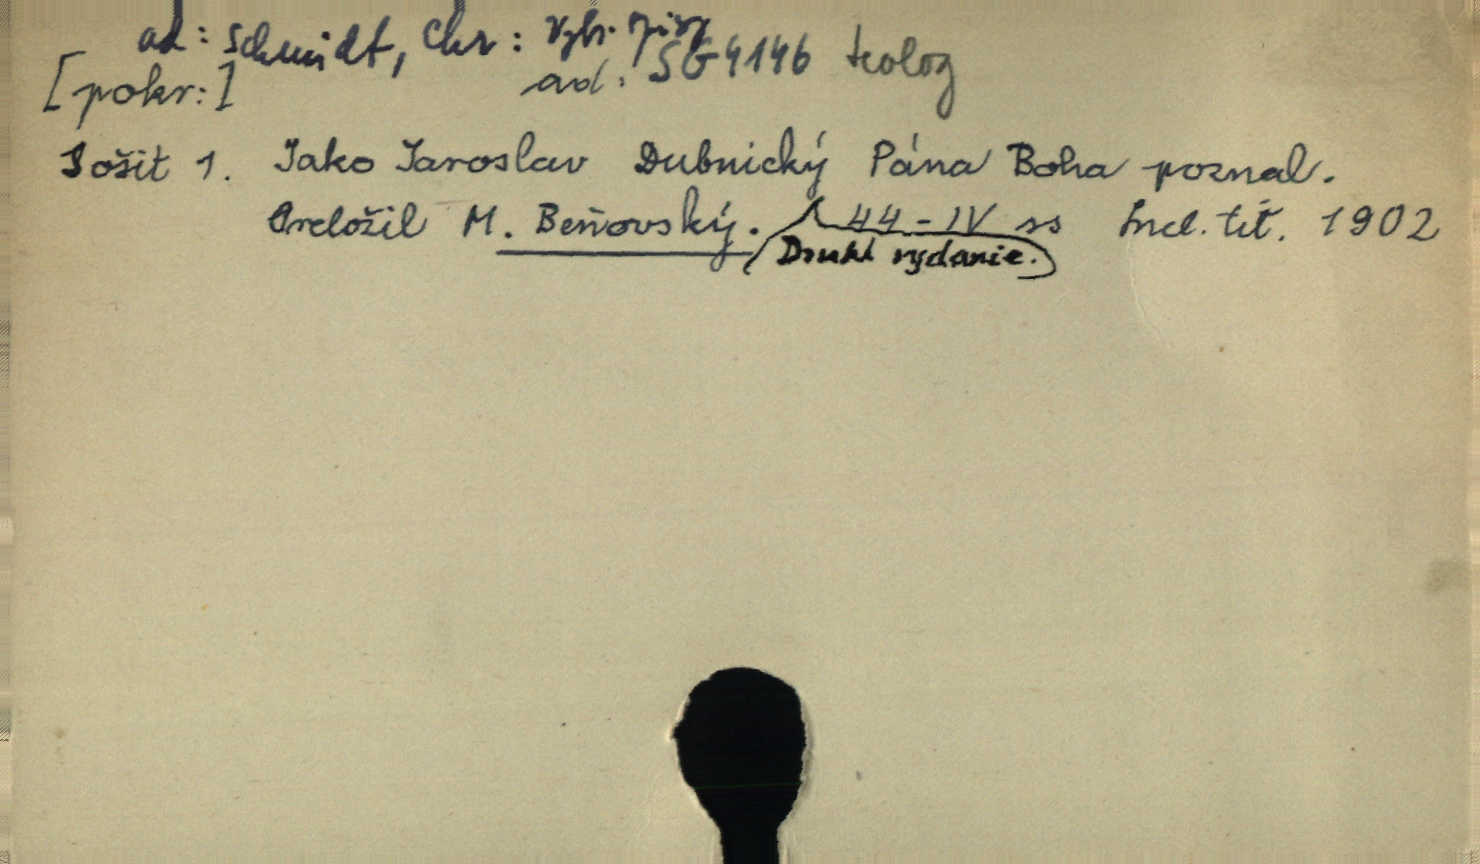 ad: Schmidt, Chr: Vybr. spisy
[pokr:] ad. SG4146 teolog
Sošit 1. Jako Jaroslav Dubnický Pána Boha poznal.
Preložil M. Beňovský. 44-IV ss Incl. tit. 1902
Druhé vydanie.